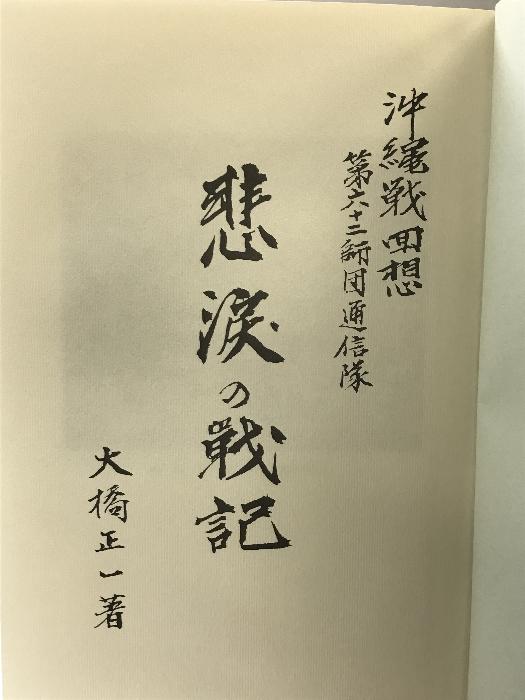 沖縄戦回想
第六十二師団通信隊
悲涙の戦記
大橋正一著